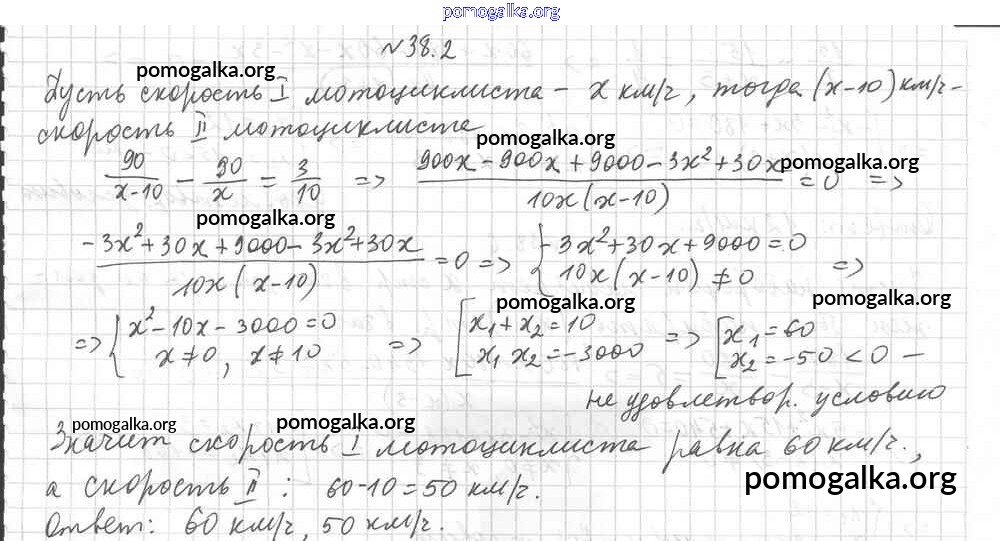 pomogalka.org
№38.2
pomogalka.org
Пусть скорость I мотоциклиста – x км/ч, тогда (x-10) км/ч-
скорость II мотоциклиста
pomogalka.org
90/(x-10) - 90/x = 3/10 => (900x - 900x + 9000 - 3x² + 30x)/(10x(x-10)) = 0 =>
pomogalka.org
pomogalka.org
(-3x² + 30x + 9000 - 3x² + 30x)/(10x(x-10)) = 0 => { -3x² + 30x + 9000 = 0
10x(x-10) ≠ 0 =>
pomogalka.org
pomogalka.org
=> { x² - 10x - 3000 = 0
x ≠ 0, x ≠ 10 => [ x₁ + x₂ = 10
x₁ x₂ = -3000 => [ x₁ = 60
x₂ = -50 < 0 –
не удовлетвор. условию
pomogalka.org
pomogalka.org
Значит скорость I мотоциклиста равна 60 км/ч.,
а скорость II : 60-10=50 км/ч.
pomogalka.org
Ответ: 60 км/ч, 50 км/ч.